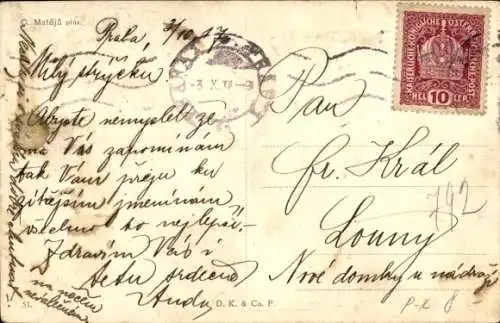 C. Matějů pinx.
Praha, 3/10 17
Milý strýčku
Abyste nemyslel že
na Vás zapomínám
tak Vám přeju ku
zítřejším jmeninám
všechno to nejlepší.
Zdravím Vás i
tetu srdečně
Anda
KAISERLICHE KÖNIGLICHE ÖSTERR. POST
HELLER 10 HELLER
-3. X. 17
Pan
fr. Král
Louny
Nové domky u nádraží
742
51.
D. K. & Co. P.